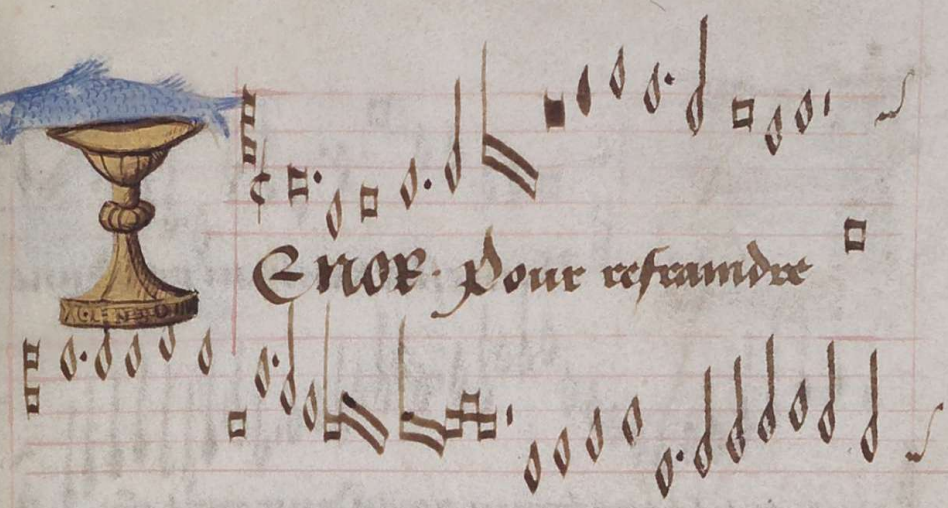 Enor. Pour refraindre